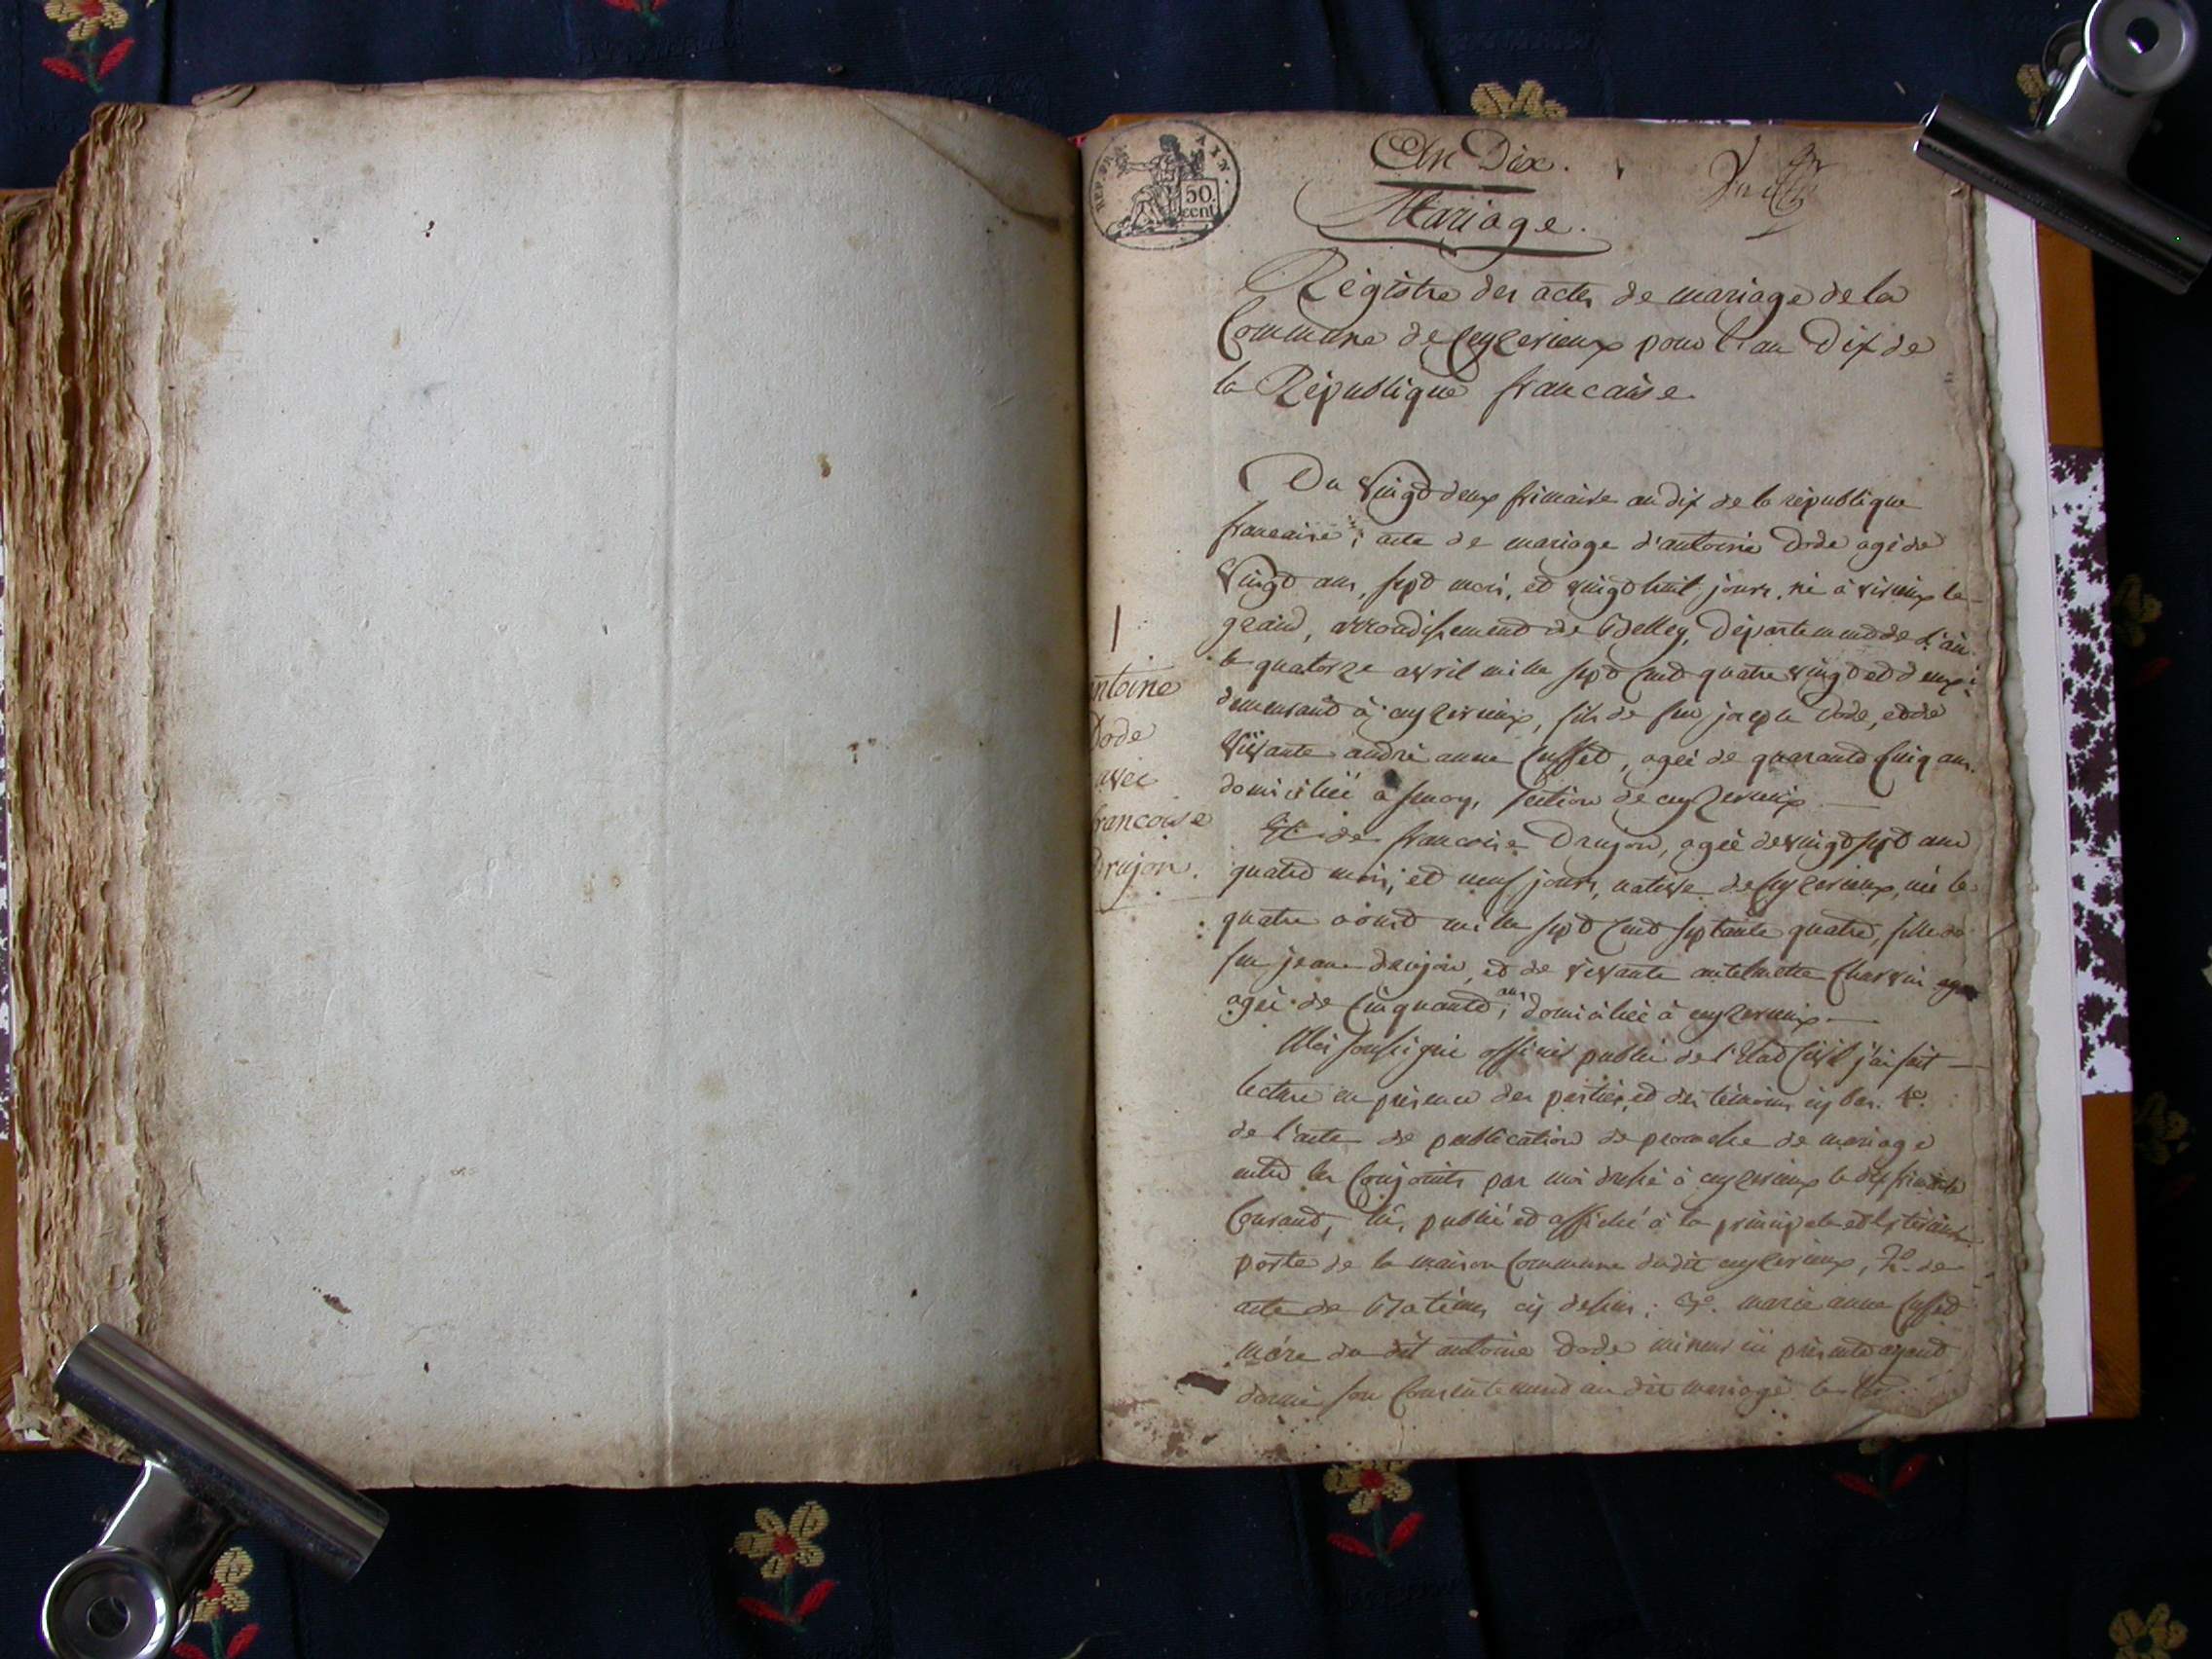 REP. FRA.
AIN.
50
cent
An Dix.
Mariage.
Régistre des actes de mariage de la
Commune de Ceyzerieux pour l'an Dix de
la République francaise.
Du vingt deux frimaire an dix de la république
francaise; acte de mariage d'antoine Dode agé de
vingt ans, sept mois, et vingt huit jours, né à virieux le
grand, arrondissement de Belley, Département de l'ain
le quatorze avril mille sept cent quatre vingt et deux;
demeurant à ceyzerieux, fils de feu joseph Dode, et de
vivante andré anne Cusset, agée de quarante cinq ans.
domiciliée à section de ceyzerieux
1
antoine
Dode
avec
francoise
Drujon.
Et de francoise Drujon, agée de vingt sept ans
quatre mois, et neuf jours, native de Ceyzerieux, née le
quatre aoust mille sept cent septante quatre, fille de
feu jean drujon, et de vivante antelmette Charvin
agée de cinquante ans, domiciliée à ceyzerieux
Moi soussigné officier public de l'état civil j'ai fait
lecture en présence des parties, et des témoins cy bas. 1°.
de l'acte de publication de promesse de mariage
entre les conjoints par moi dressé à ceyzerieux le dix frimaire
Courant, lu, publié et affiché à la principale et extérieure
porte de la maison commune dudit ceyzerieux, 2°. de
acte de cy dessus; 3°. marie anne Cusset
mére du dit antoine Dode mineur ici présente ayant
donné son Consentement au dit mariage